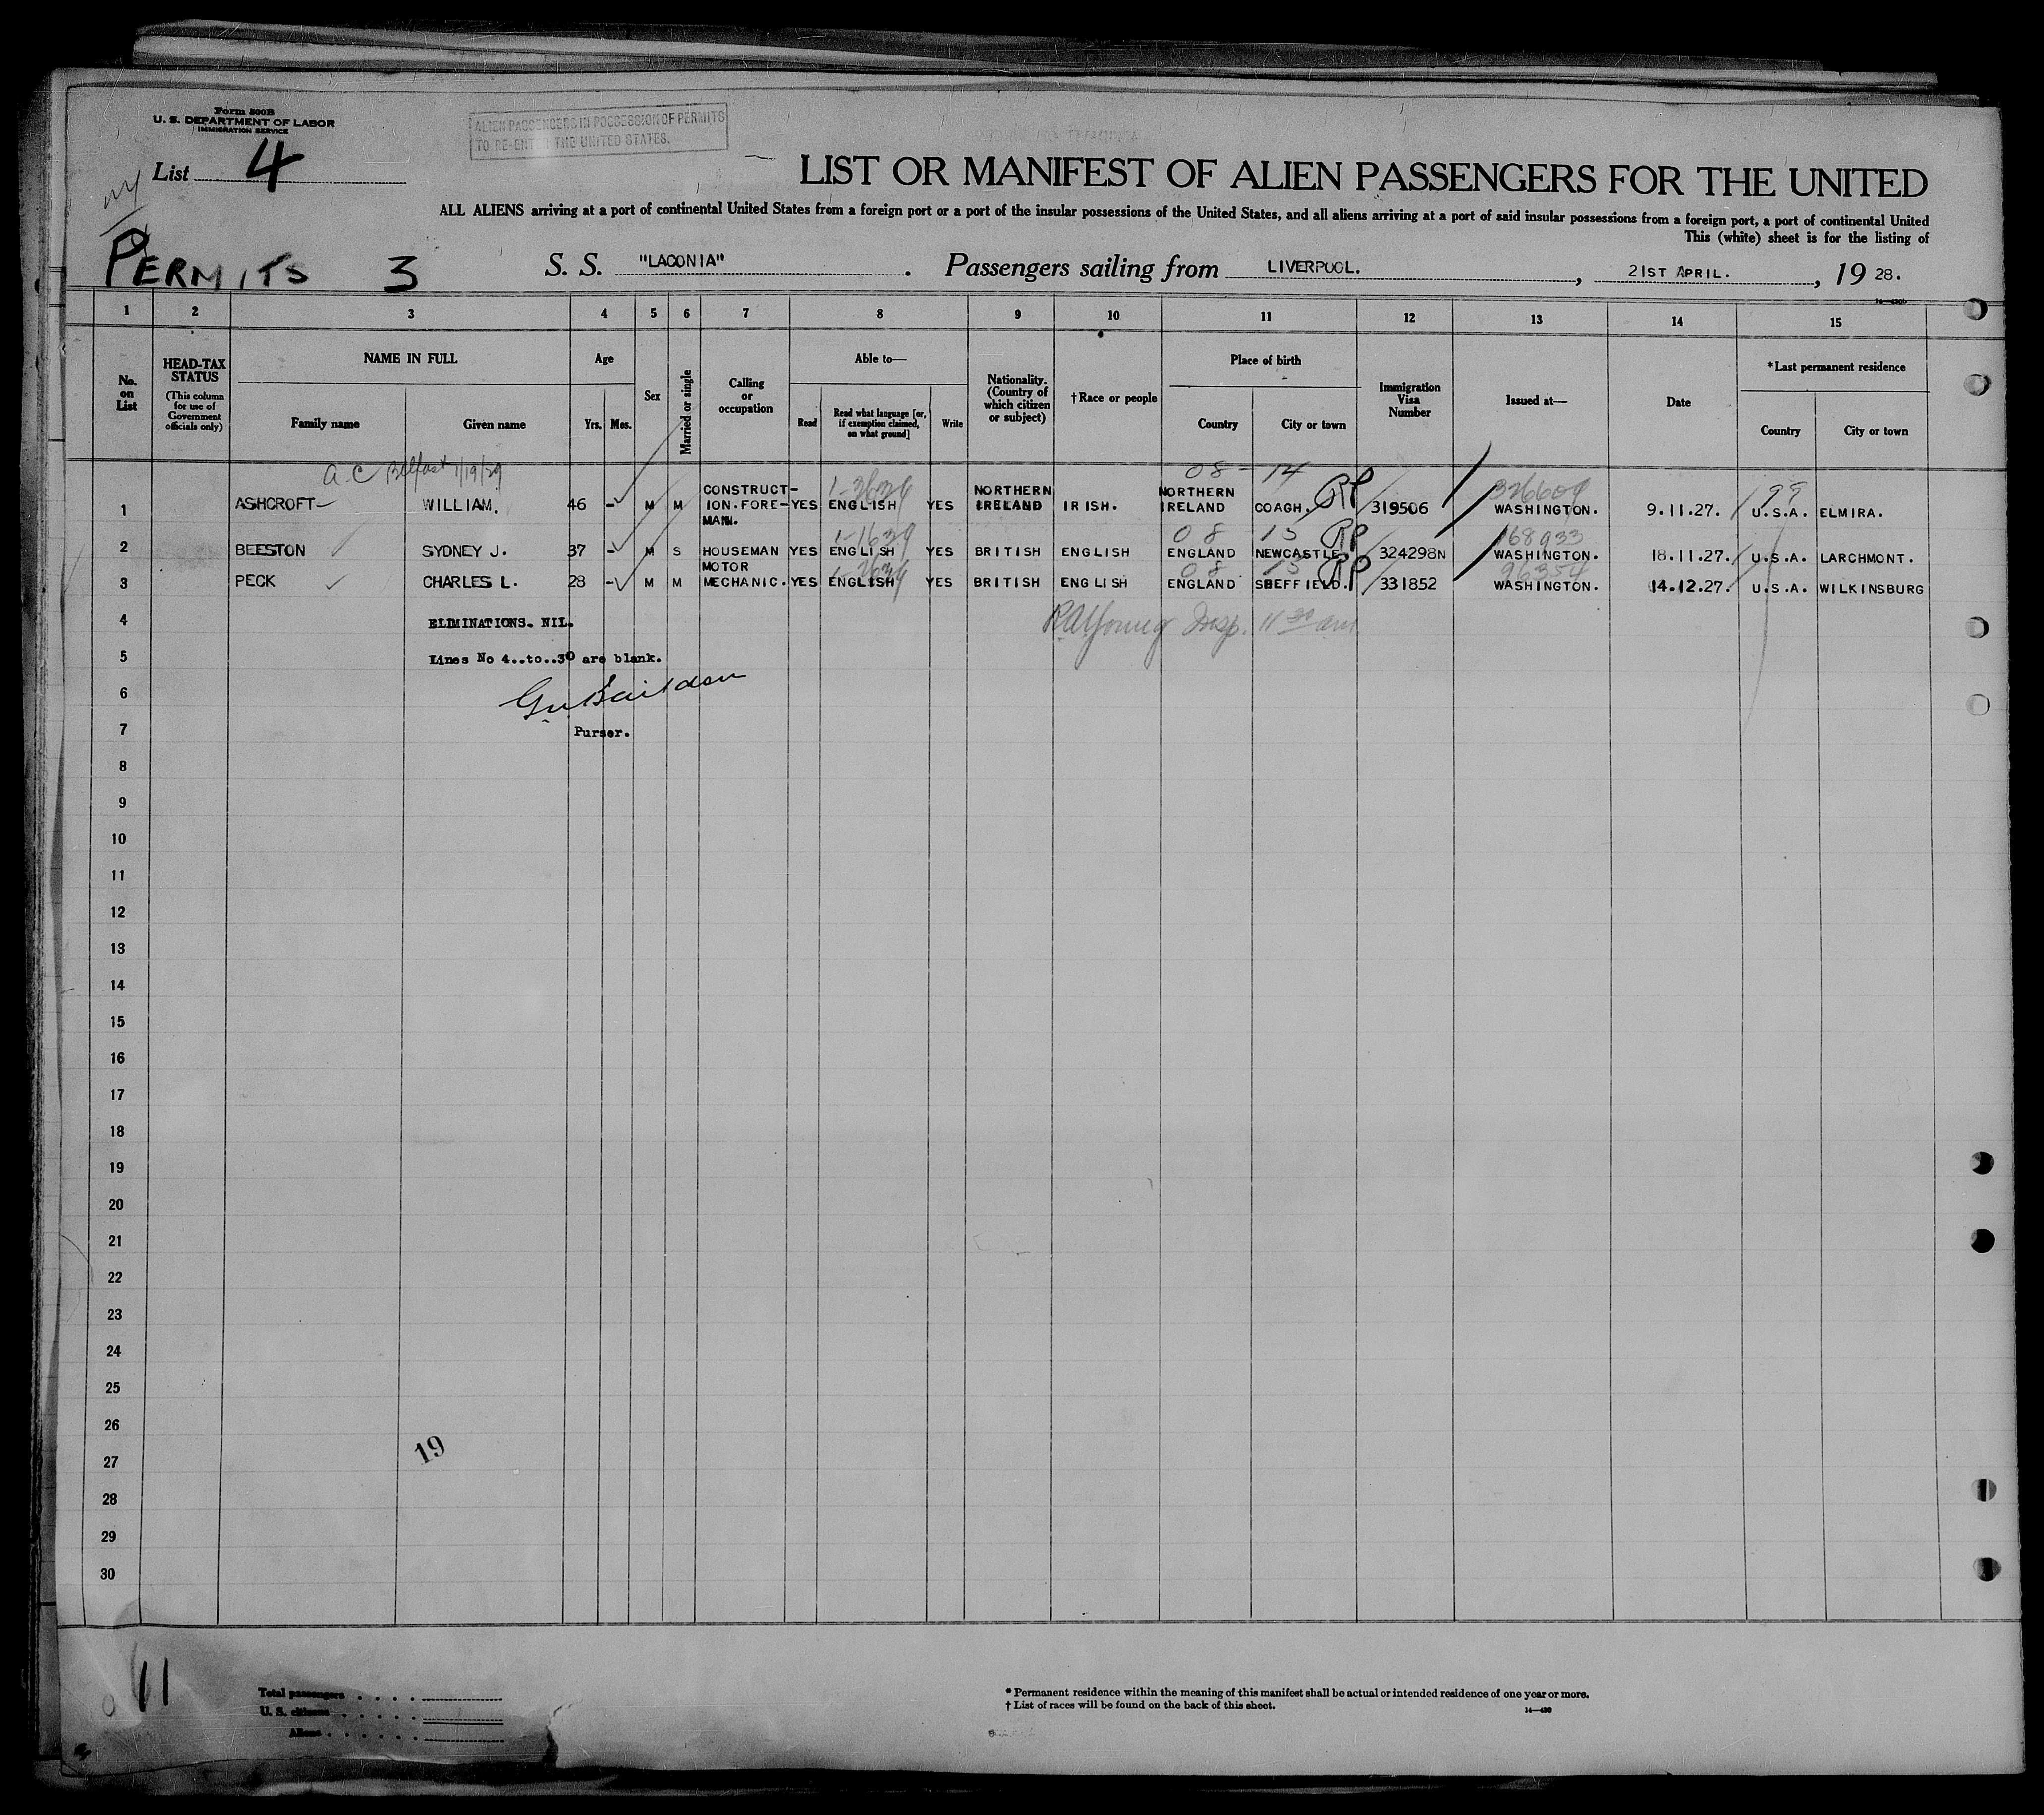 Form 500B
U. S. DEPARTMENT OF LABOR
IMMIGRATION SERVICE
ALIEN PASSENGERS IN POSSESSION OF PERMITS
TO RE-ENTER THE UNITED STATES.
List 4
LIST OR MANIFEST OF ALIEN PASSENGERS FOR THE UNITED
ALL ALIENS arriving at a port of continental United States from a foreign port or a port of the insular possessions of the United States, and all aliens arriving at a port of said insular possessions from a foreign port, a port of continental United
This (white) sheet is for the listing of
PERMITS 3
S. S. "LACONIA". Passengers sailing from LIVERPOOL., 21ST APRIL., 19 28.
1 2 3 4 5 6 7 8 9 10 11 12 13 14 15
No. on List
HEAD-TAX STATUS
(This column for use of Government officials only)
NAME IN FULL
Family name Given name
Age
Yrs. Mos.
Sex
Married or single
Calling or occupation
Able to—
Read Read what language [or, if exemption claimed, on what ground] Write
Nationality. (Country of which citizen or subject)
†Race or people
Place of birth
Country City or town
Immigration Visa Number
Issued at—
Date
*Last permanent residence
Country City or town
a.c Belfast 1/19/29
08 - 14
1 ASHCROFT WILLIAM. 46 - M M CONSTRUCT-ION.FORE-MAN. YES ENGLISH YES NORTHERN IRELAND IRISH. NORTHERN IRELAND COAGH. RP 319506 WASHINGTON. 9.11.27. U.S.A. ELMIRA.
08 15
168933
2 BEESTON SYDNEY J. 37 - M S HOUSEMAN YES ENGLISH YES BRITISH ENGLISH ENGLAND NEWCASTLE RP 324298N WASHINGTON. 18.11.27. U.S.A. LARCHMONT.
08 15
96354
3 PECK CHARLES L. 28 - M M MOTOR MECHANIC. YES ENGLISH YES BRITISH ENGLISH ENGLAND SHEFFIELD. RP 331852 WASHINGTON. 14.12.27. U.S.A. WILKINSBURG
4 ELIMINATIONS. NIL.
Insp. 11 30 am.
5 Lines No 4..to..30 are blank.
6
7 Purser.
8
9
10
11
12
13
14
15
16
17
18
19
20
21
22
23
24
25
26
19
27
28
29
30
11
Total passengers
U. S. citizens
Aliens
* Permanent residence within the meaning of this manifest shall be actual or intended residence of one year or more.
† List of races will be found on the back of this sheet.
14—430